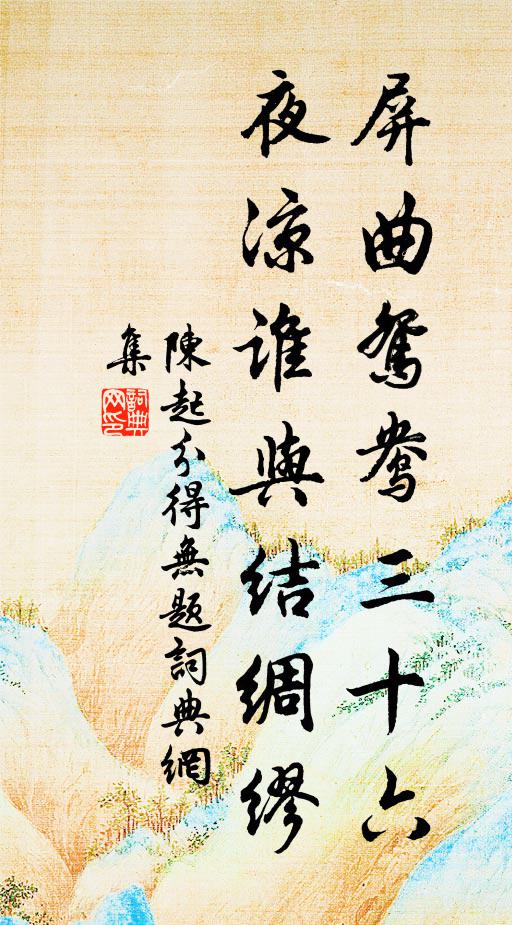 屏曲鴛鴦三十六
夜凉誰與結綢繆
陳起分得無題詞典網
集
詞典網印